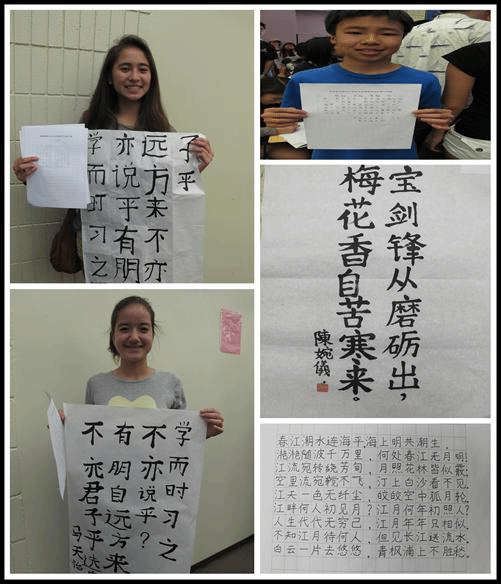 学而时习之
亦说乎有朋
远方来不亦
子乎
宝剑锋从磨砺出，
梅花香自苦寒来。
陳婉儀
学而时习之
不亦说乎？
有朋自远方来
不亦君子乎
马天
春江潮水连海平,海上明共潮生;
滟滟随波千万里,何处春江无月明!
江流宛转绕芳甸,月照花林皆似霰;
空里流不飞,汀上白沙看不见
江天一色无纤尘,皎皎空中孤月轮
江畔何人初见月？江月何年初照人？
人生代代无穷已,江月年年只相似
不知江月待何人,但见长江送流水
白云一片去悠悠,青枫浦上不胜愁